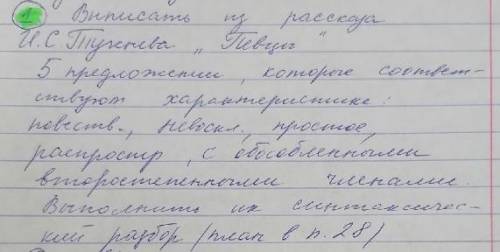 1 Выписать из рассказа
И.С Тургнева „Певцы"
5 предложений, которые соответ-
ствуют характеристике:
повеств., невоскл., простое,
распростр, с обособленными
второстепенными членами.
Выполнить их синтаксичес-
кий разбор (план в п. 28)